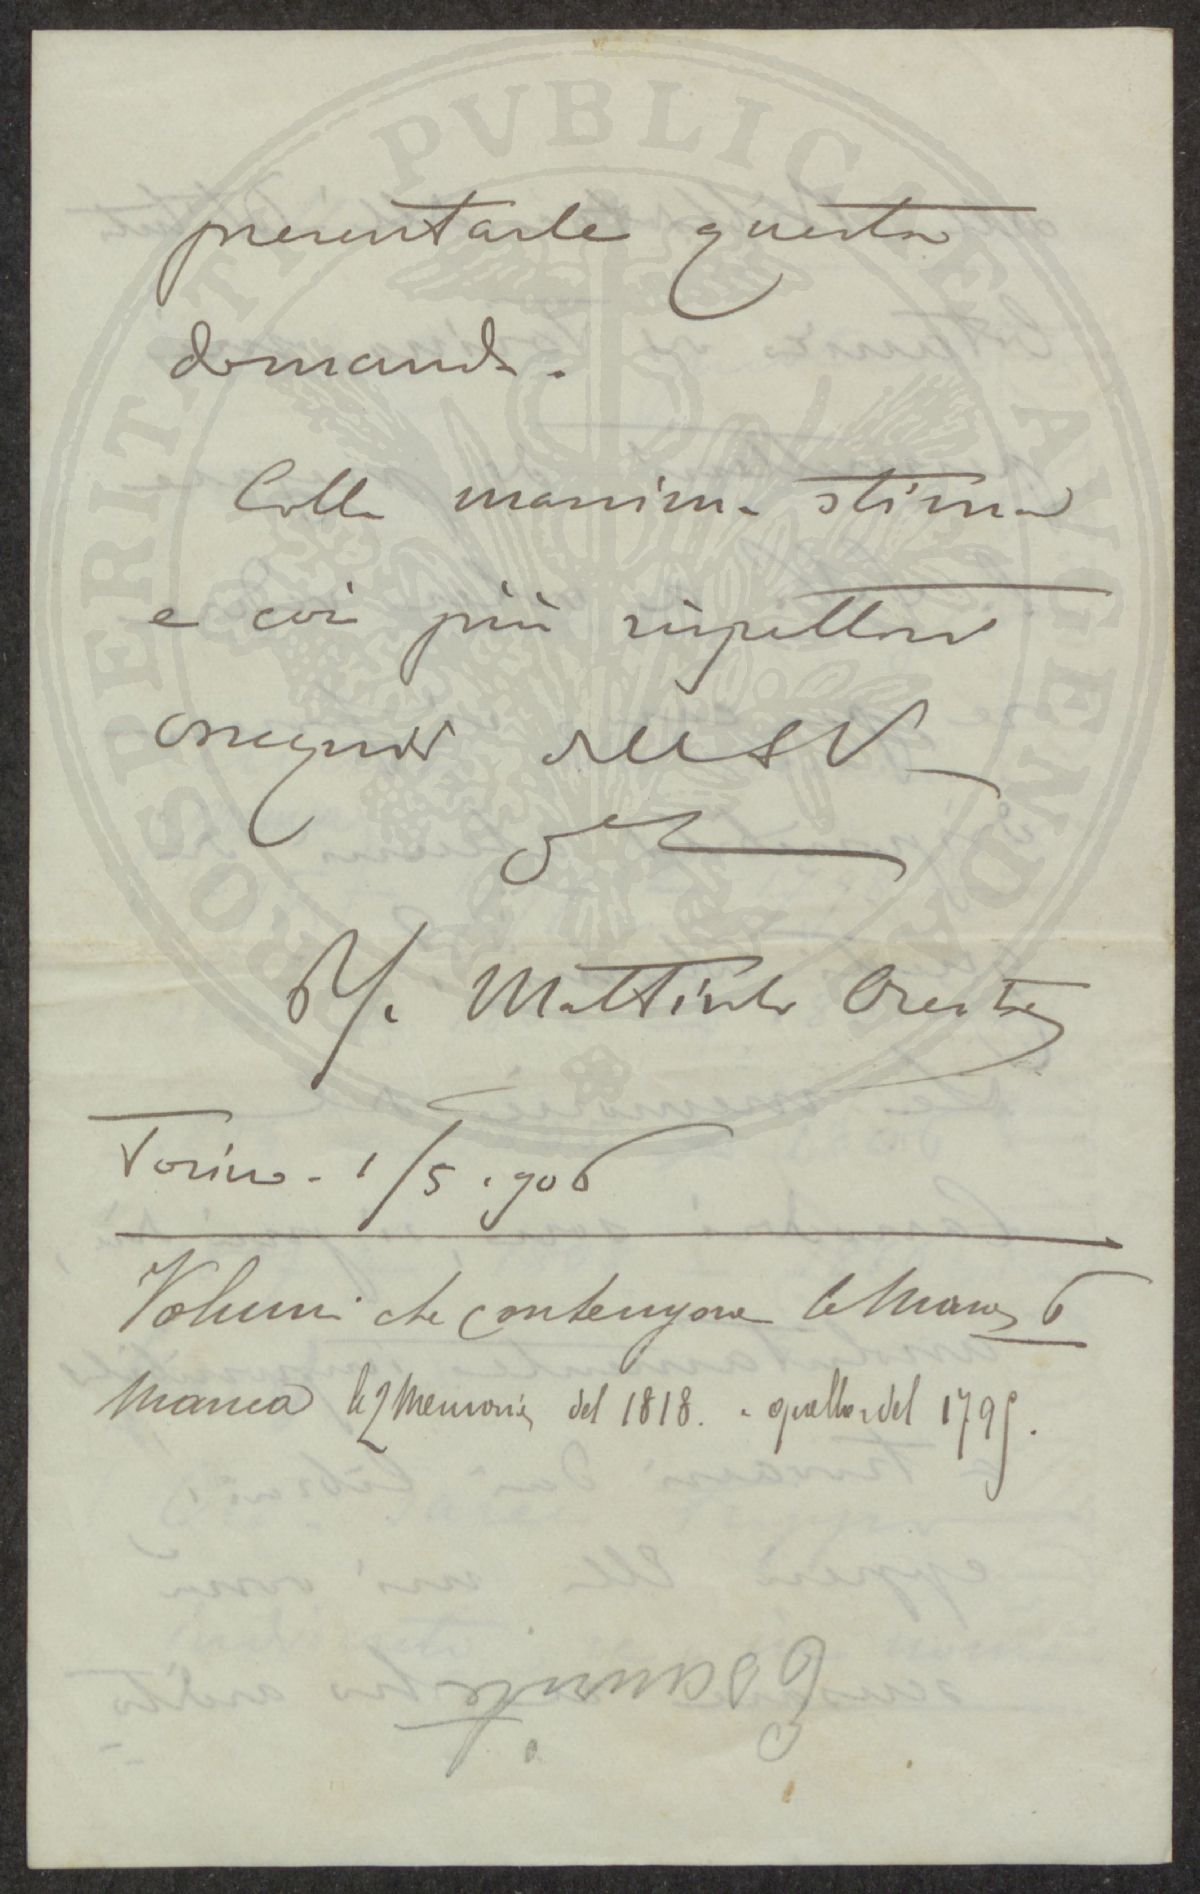 presentarle questa
domanda.
Colla massima stima
e coi più rispettosi
ossequi della S V
Prf. Mattirolo Oreste
Torino - 1/5 . 906
Volumi che contengono le Mem. 6
Manca le 2 Memorie del 1818. e quella del 1795.
Esaurite
PROSPERITATI PVBLICAE AVGENDAE